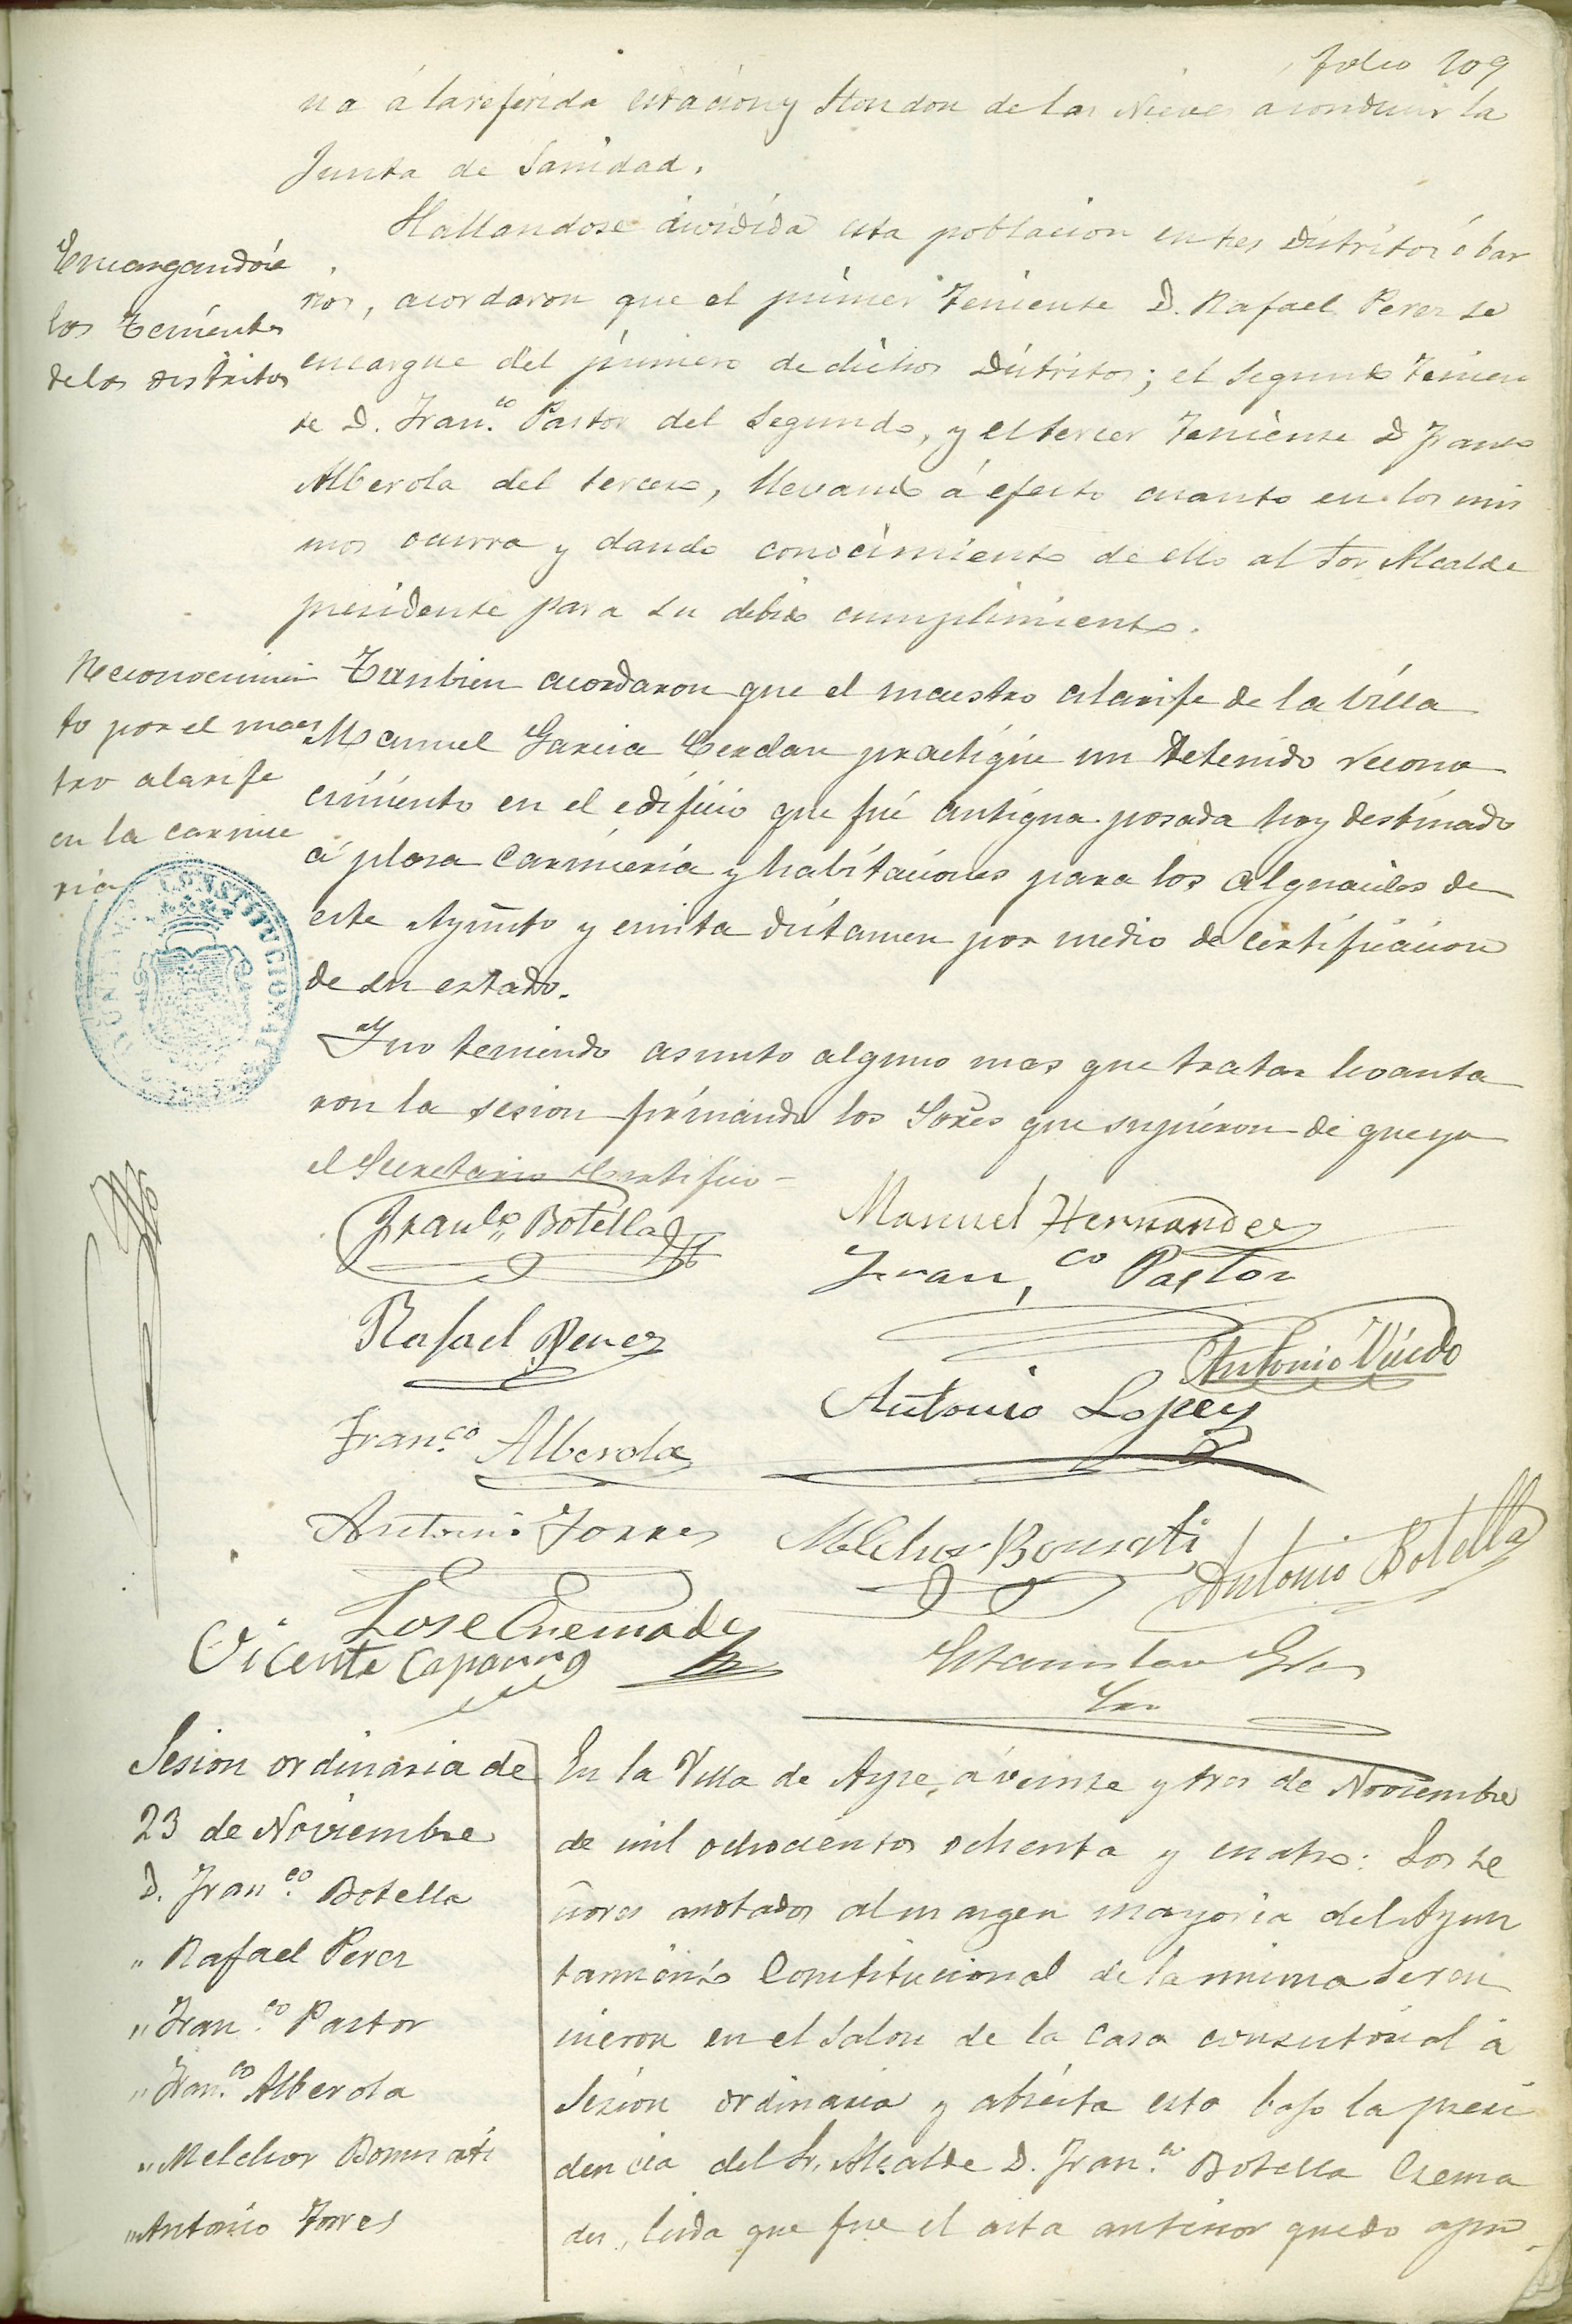 folio 109
na á la referida estación y Hondon de las Nieves a conducir la
Junta de Sanidad.
Hallandose dividida esta poblacion en tres Distritos ó bar
Encargandose
los Tenientes
de los distritos
rios, acordaron que el primer Teniente D. Rafael Perez se
encargue del primero de dichos Distritos; el Segundo Tenien
te D. Fran.co Pastor del Segundo, y el tercer Teniente D Franco
Alberola del tercero, llevando á efecto cuanto en los mis
mos ocurra y dando conocimiento de ello al Sor Alcalde
presidente para su debido cumplimiento.
Reconocimien
to por el maes
tro alarife
en la carnice
ria
Tanbien acordaron que el maestro alarife de la Villa
Manuel Garcia Cerdan practique un detenido recono
cimiento en el edificio que fué antigua posada hoy destinado
á plasa Carniceria y habitaciones para los alguaciles de
este Ayunto y emita dictamen por medio de certificacion
de su estado.
CONSTITUCIONAL
Y no teniendo asunto alguno mas que tratar levanta
ron la sesion firmando los Sores que supieron de que yo
el Secretario Certifico
Franco Botella
Manuel Hernandez
Fran,co Pastor
Rafael Perez
Antonio Lopez
Fran.co Alberola
Antonio Torres
Melchor Bonmati
Antonio Botella
Jose Cremades
Vicente Caparros
Estanislao
Srio
Sesion ordinaria de
23 de Noviembre
D. Fran.co Botella
" Rafael Perez
" Fran.co Pastor
" Fran.co Alberola
" Melchor Bonmati
" Antonio Torres
En la Villa de Aspe, á veinte y tres de Noviembre
de mil ochocientos ochenta y cuatro: Los se
ñores anotados al margen mayoria del Ayun
tamiento Constitucional de la misma se reu
nieron en el Salon de la Casa consistorial á
Sesion ordinaria y abierta esta bajo la presi
dencia del Sr. Alcalde D. Fran.co Botella Crema
des, leida que fue el acta anterior quedo apro